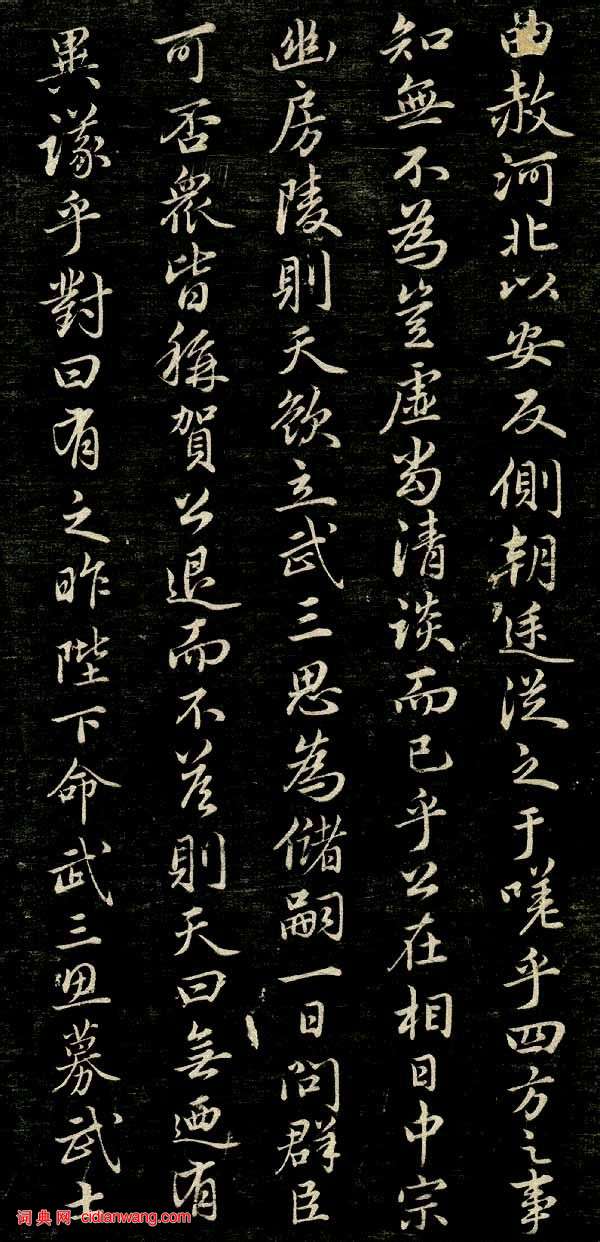 曲赦河北以安反側朝廷從之于嗟乎四方之事
知無不為豈虛尚清談而已乎公在相日中宗
幽房陵則天欲立武三思為儲嗣一日問群臣
可否眾皆稱賀公退而不答則天曰無迺有
異議乎對曰有之昨陛下命武三思募武士
词典网 cidianwang.com